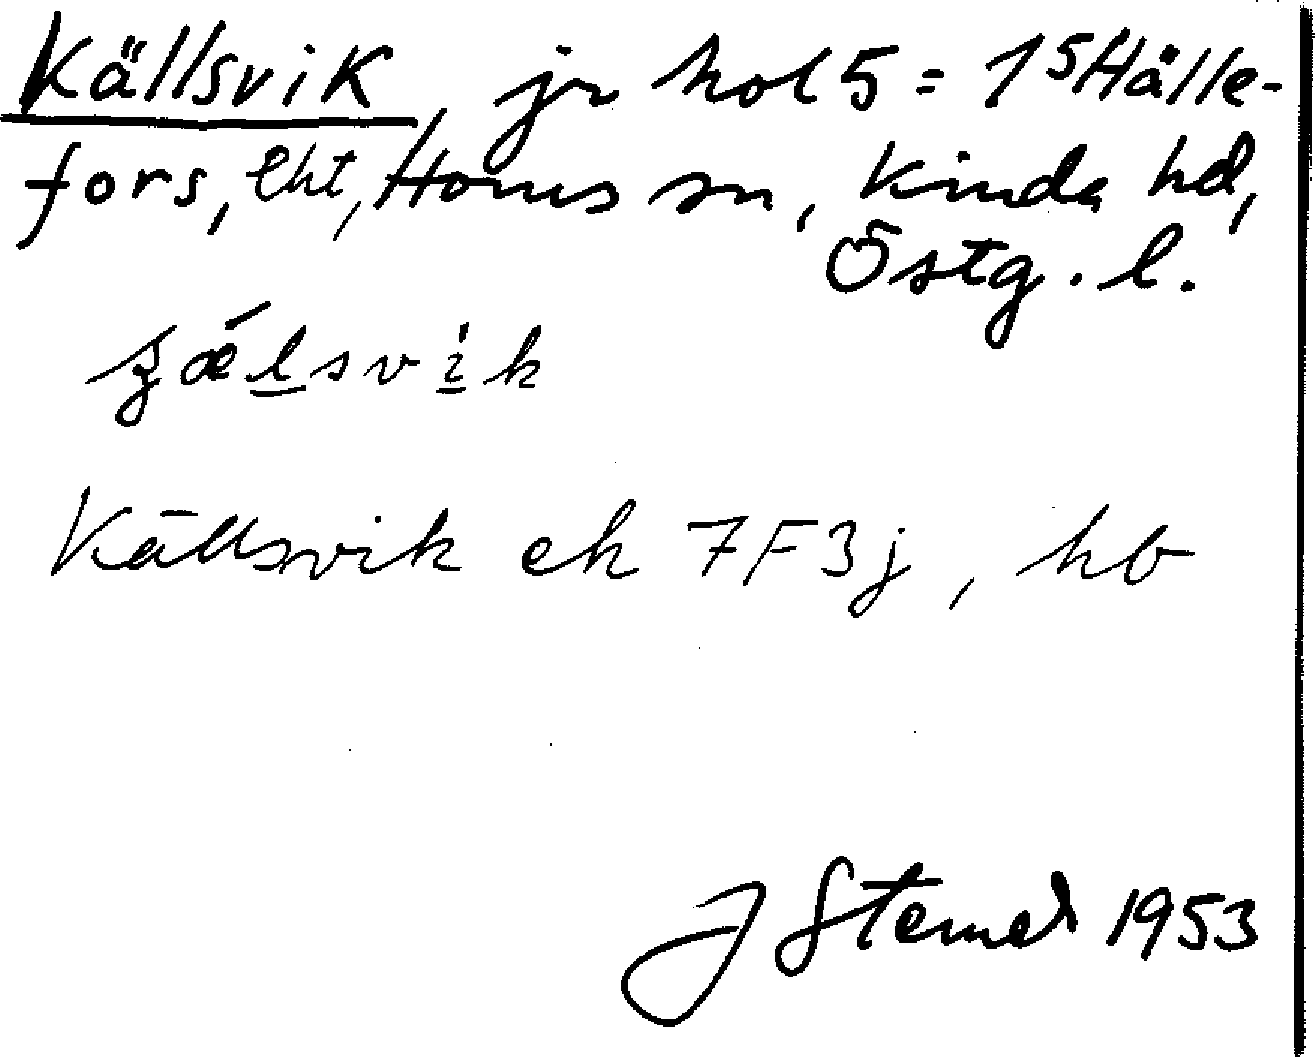 Källsvik, jr hol 5 = 1⁵ Hälle-
fors, lht, Horns sn, Kinda hd,
Östg. l.
Källsvik ek 7F3j, hb
J Stemed 1953